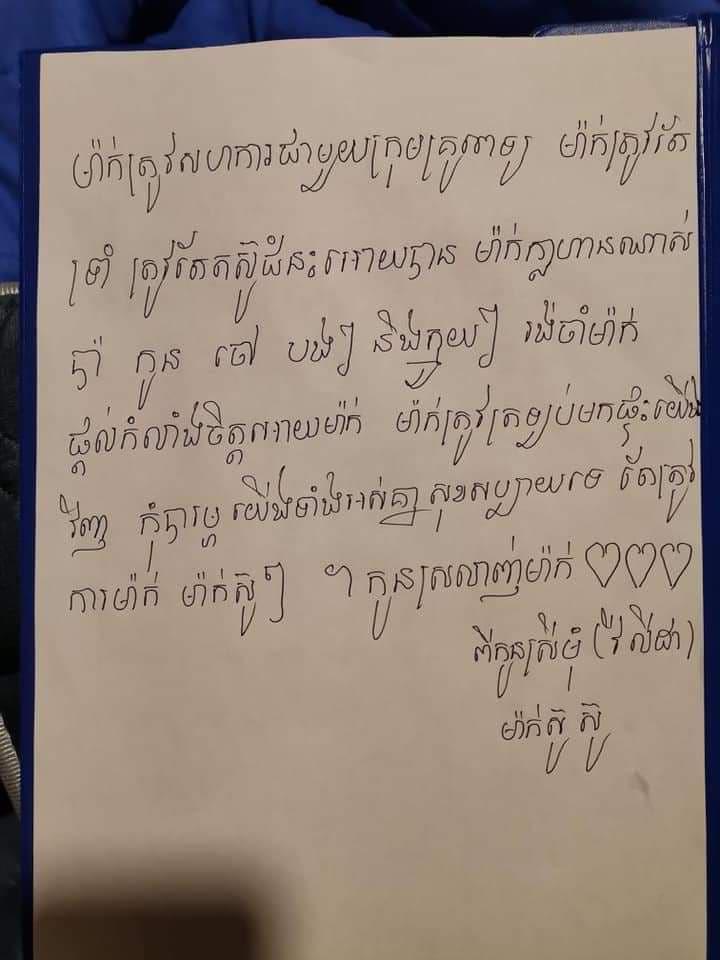 ម៉ាក់ត្រូវសហការជាមួយក្រុមគ្រូពេទ្យ ម៉ាក់ត្រូវតែ
ទ្រាំ ត្រូវតែតស៊ូជំនះអោយបាន ម៉ាក់ក្លាហានណាស់
ប៉ា កូន ចៅ បងៗ និងក្មួយៗ រង់ចាំម៉ាក់
ផ្តល់កំលាំងចិត្តអោយម៉ាក់ ម៉ាក់ត្រូវត្រឡប់មកផ្ទះយើង
វិញ កុំបារម្ភ យើងទាំងអស់គ្នាសុខសប្បាយទេ តែត្រូវ
ការម៉ាក់ ម៉ាក់ស៊ូៗ ។ កូនស្រលាញ់ម៉ាក់ ♡♡♡
ពីកូនស្រីមុំ (វ៉ីលីដា)
ម៉ាក់ស៊ូ ស៊ូ